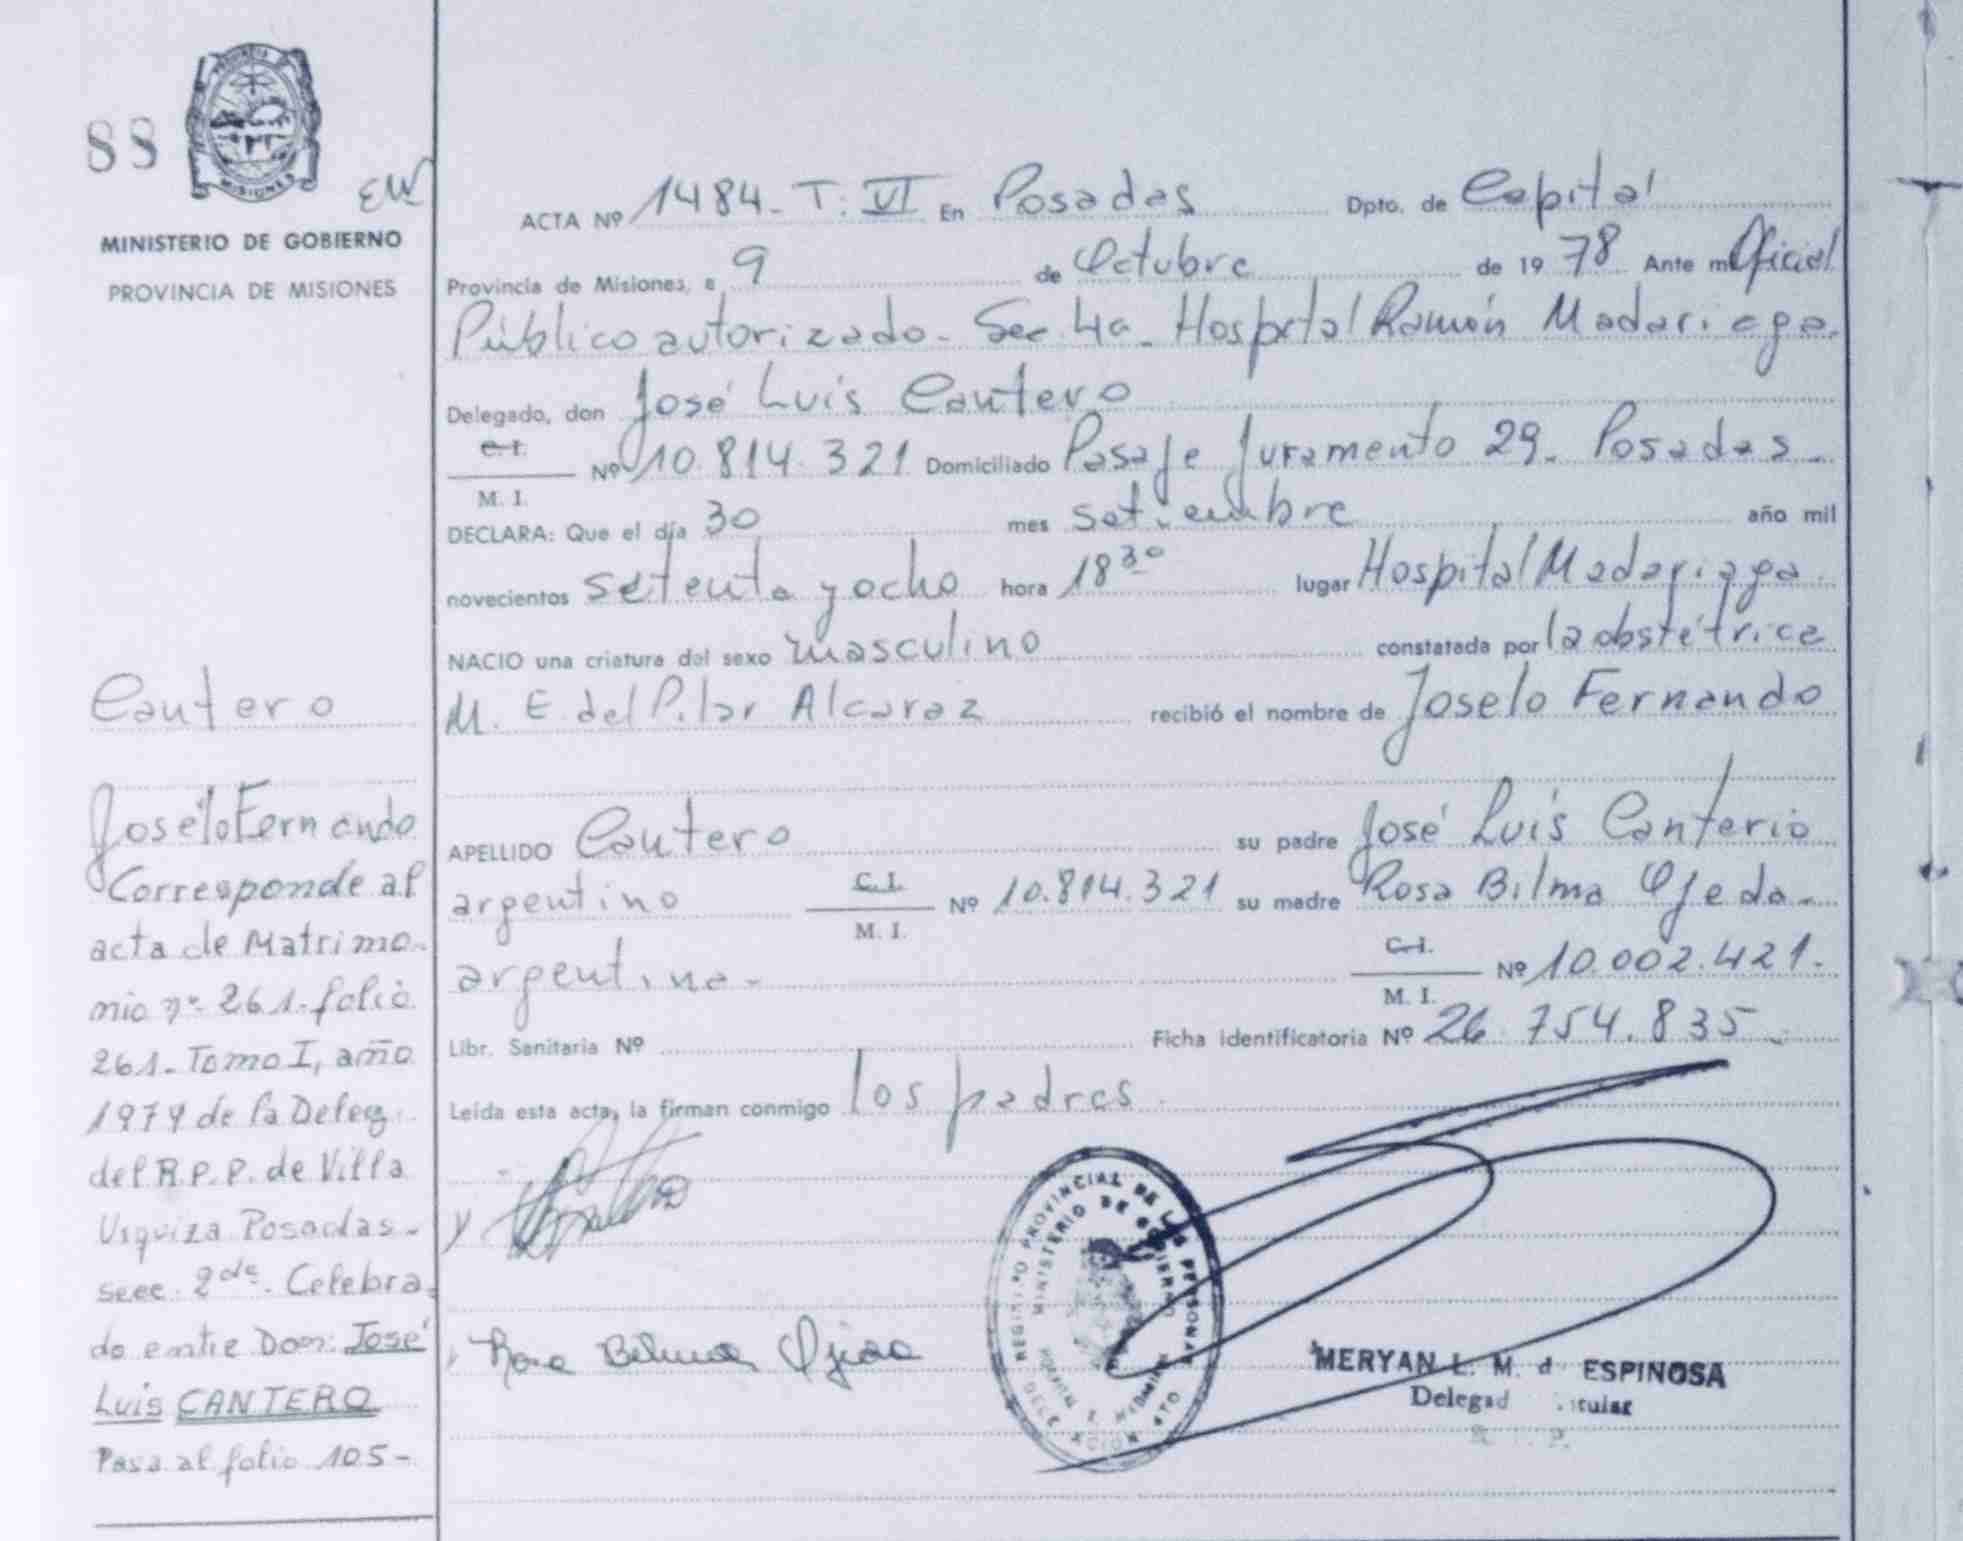 88
PROVINCIA DE
MISIONES
MINISTERIO DE GOBIERNO
PROVINCIA DE MISIONES
Cantero
Joselo Fernando
Corresponde al
acta de Matrimo-
nio nº 261. folio
261. Tomo I, año
1979 de la Deleg.
del R.P.P. de Villa
Urquiza Posadas-
secc. 2da. Celebra-
do entre Don: José
Luis CANTERO
Pasa al folio 105-
ACTA Nº 1484- T. VI En Posadas Dpto. de Capital
Provincia de Misiones, a 9 de Octubre de 1978 Ante mi Oficial
Público autorizado- Sec. 4a- Hospital Ramón Madariaga.
Delegado, don José Luis Cantero
C.I.
M. I. Nº 10.814.321 Domiciliado Pasaje Juramento 29- Posadas-
DECLARA: Que el día 30 mes setiembre año mil
novecientos setenta y ocho hora 18 30 lugar Hospital Madariaga
NACIO una criatura del sexo masculino constatada por la obstétrica
M. E. del Pilar Alcaraz recibió el nombre de Joselo Fernando
APELLIDO Cantero su padre José Luis Canterio
argentino C.I. M. I. Nº 10.814.321 su madre Rosa Bilma Ojeda-
argentina- C.I. M. I. Nº 10.002.421.
Libr. Sanitaria Nº Ficha identificatoria Nº 26.754.835-
Leída esta acta, la firman conmigo los padres.
y
Rosa Bilma Ojeda
REGISTRO PROVINCIAL DE LAS PERSONAS
MINISTERIO DE GOBIERNO
MERYAN L. M. d ESPINOSA
Delegad itular
R. P.